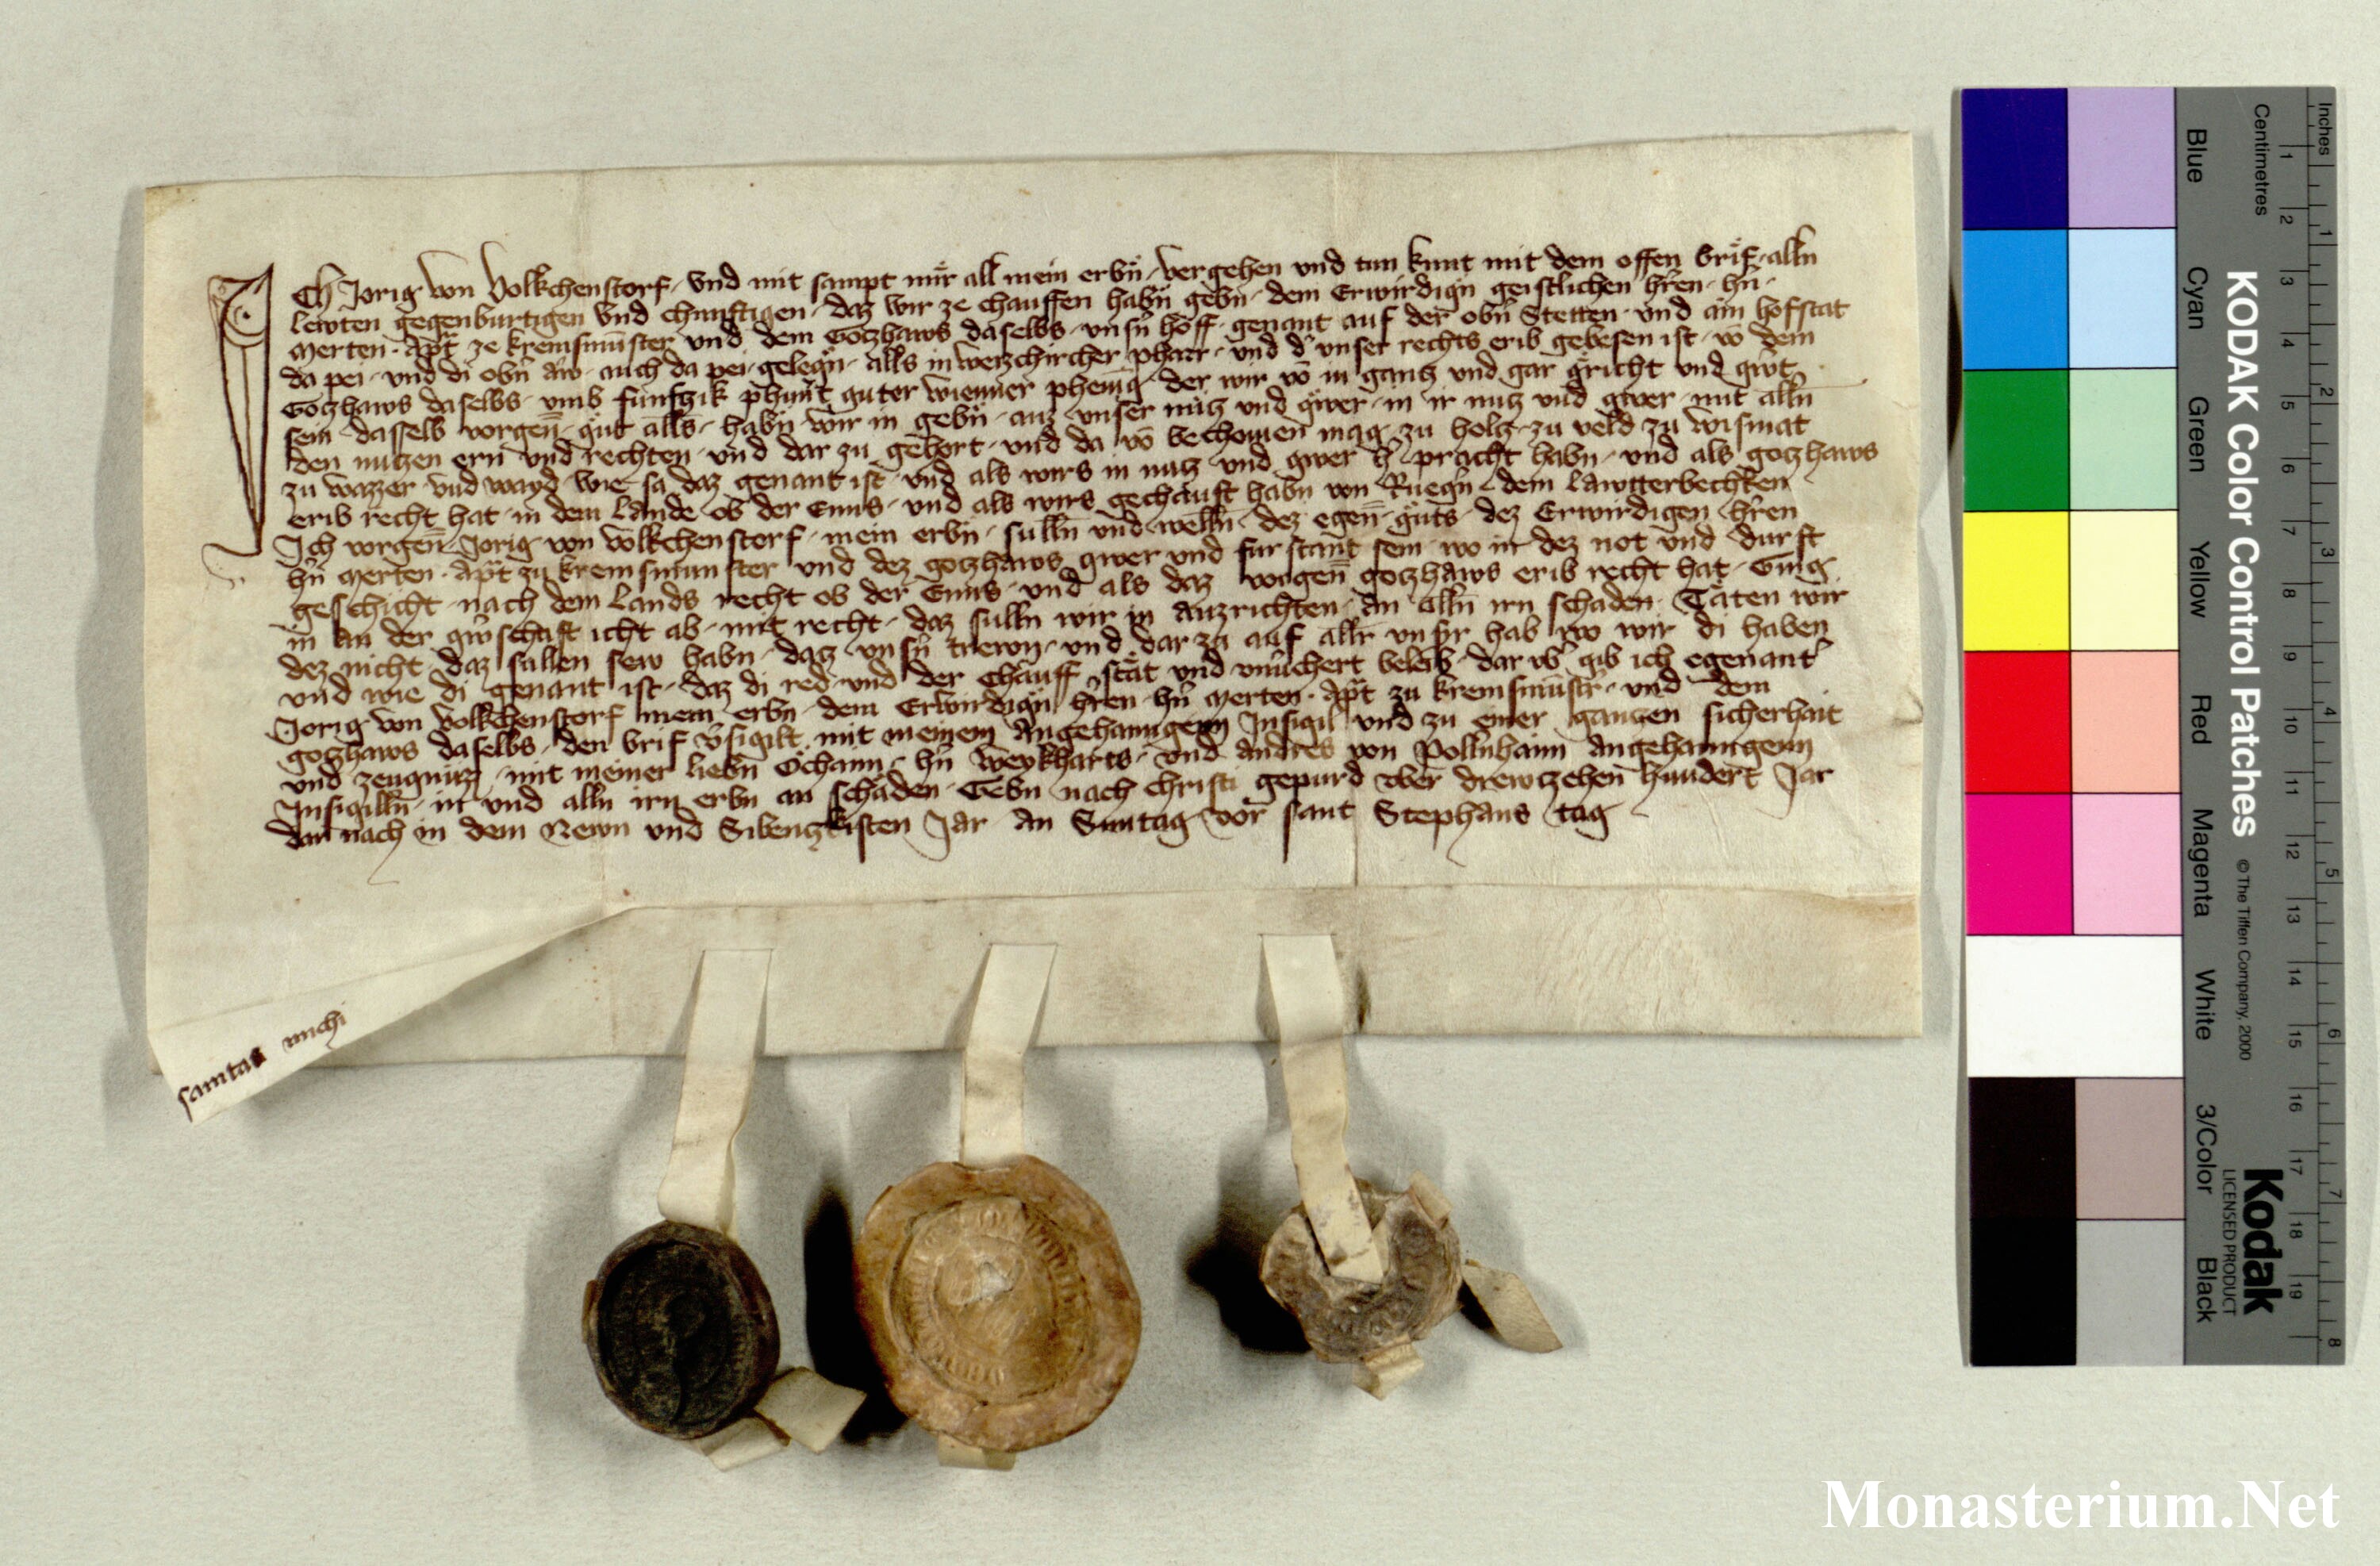 ICh Jorig von Volkchenstorf · vnd mit sampt mir all mein erbn · vergehen vnd tun kunt mit dem offen brif · alln
lewten gegenburtigen vnd chunftigen · daz wir ze chauffen habn gebn · dem Erwirdign geistlichen hren · hn ·
Merten · Apt ze kremsmunster vnd dem Gotzhaws daselbs · vnsn hoff · genant auf der obn Stetten · vnd ain hofstat
da pei · vnd di obn aw · auch da pei · gelegn · alls in weizchircher pharr · vnd d' vnser rechts erib gebesen ist · vo dem
Gotzhaws daselbs · vmb funfzik phunt guter wienner phenig · der wir vo in gantz vnd gar gricht vnd gwt ·
sein dasselb vorgen · gut alls · habn wir in gebn · auz vnser nutz vnd gwer · in ir nutz vnd gwer · mit alln
den nutzen ern vnd rechten · vnd dar zu gehort · vnd da vo bechomen mag · zu holtz · zu veld zu wismat
zu wazzer vnd wayd · wie sa daz genant ist · vnd als wirs in nutz vnd gwer h' pracht habn · vnd als gotzhaws
erib recht hat · in dem Lande ob der Enns · vnd als wirs gechauft habn von Ruegn dem Lawtterbechken
Ich vorgen · Jorig von Volkchenstorf · mein erbn · sulln vnd welln · dez egen · guts · dez Erwirdigen hren
hn Merten · Apt zu kremsmunster vnd dez gotzhaws gwer vnd furstant sein · wo in dez not vnd durft
geschicht · nach dem Lands recht ob der Enns · vnd als daz vorgen gotzhaws erib recht hat · Ging
in an der gwschaft icht ab · mit recht · daz sulln wir in auzrichten · an alln irn schaden · Täten wir
dez nicht · daz sullen sew habn · daz vnsn trewn · vnd dar zu auf allr vnsr hab wo wir di haben
vnd wie di genant ist · daz di red · vnd der Chauff stät vnd vnuchert beleib · dar vb' gib ich egenant'
Jorig von Volkchenstorf mein erbn · dem Erwirdign hren · hn Merten · Apt zu kremsmustr · vnd dem
gotzhaws daselbs · den brif v'sigilt mit meinem Angehanngenn Insigil vnd zu einer ganczen sicherhait
vnd zeugnuzz · mit meiner liebn Öchaim · hn Weykharts · vnd Andres von Pollnhaim Angehanngenn
Insigilln · in vnd alln irn erbn an schaden · Gebn nach Christi gepurd vber drewtzehen hundert Jar
dar nach in dem Newn vnd Sibentzkisten Jar · An Suntag vor sant Stephans tag
samtas michi
KODAK Color Control Patches
© The Tiffen Company, 2000
Kodak
LICENSED PRODUCT
Blue Cyan Green Yellow Red Magenta White 3/Color Black
Inches 1 2 3 4 5 6 7 8
Centimetres 1 2 3 4 5 6 7 8 9 10 11 12 13 14 15 16 17 18 19
Monasterium.Net